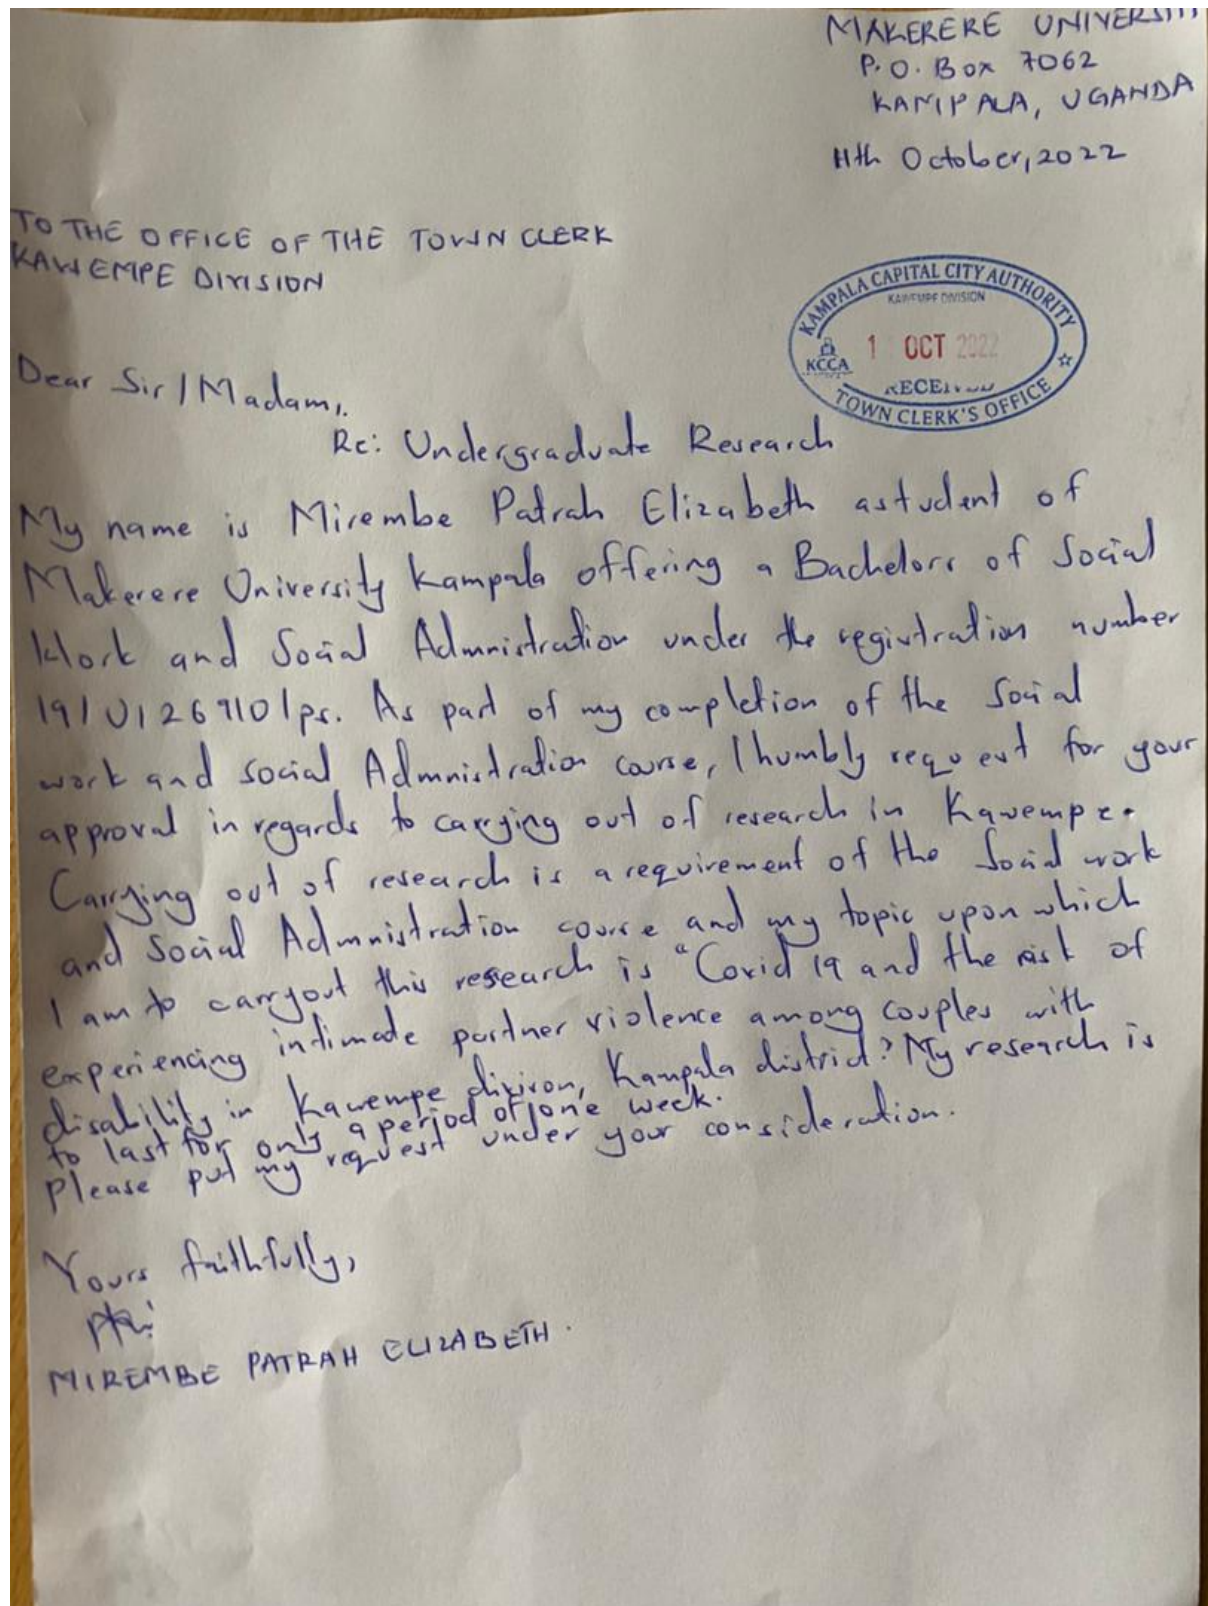 MAKERERE UNIVERSITY
P.O. Box 7062
KAMPALA, UGANDA
11th October, 2022
TO THE OFFICE OF THE TOWN CLERK
KAWEMPE DIVISION
KAMPALA CAPITAL CITY AUTHORITY
KAWEMPE DIVISION
1 OCT 2022
KCCA
RECEIVED
TOWN CLERK'S OFFICE
Dear Sir/Madam,
Re: Undergraduate Research
My name is Mirembe Patrah Elizabeth astudent of
Makerere University Kampala offering a Bachelors of Social
Work and Social Admnistration under the registration number
19/U/26910/ps. As part of my completion of the Social
work and social Admnistration course, I humbly request for your
approval in regards to carrying out of research in Kawempe.
Carrying out of research is a requirement of the Social work
and Social Admnistration course and my topic upon which
I am to carryout this research is "Covid 19 and the risk of
experiencing intimate partner violence among couples with
disability in Kawempe division, Kampala district? My research is
to last for only a period of one week.
Please put my request under your consideration.
Yours faithfully,
MIREMBE PATRAH ELIZABETH.